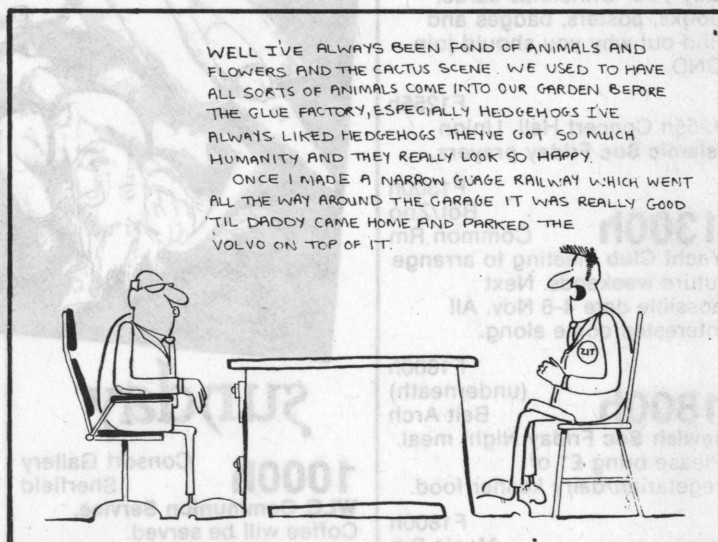 WELL I'VE ALWAYS BEEN FOND OF ANIMALS AND
FLOWERS AND THE CACTUS SCENE. WE USED TO HAVE
ALL SORTS OF ANIMALS COME INTO OUR GARDEN BEFORE
THE GLUE FACTORY, ESPECIALLY HEDGEHOGS I'VE
ALWAYS LIKED HEDGEHOGS THEYVE GOT SO MUCH
HUMANITY AND THEY REALLY LOOK SO HAPPY.
ONCE I MADE A NARROW GUAGE RAILWAY WHICH WENT
ALL THE WAY AROUND THE GARAGE IT WAS REALLY GOOD
'TIL DADDY CAME HOME AND PARKED THE
VOLVO ON TOP OF IT.
ZIT